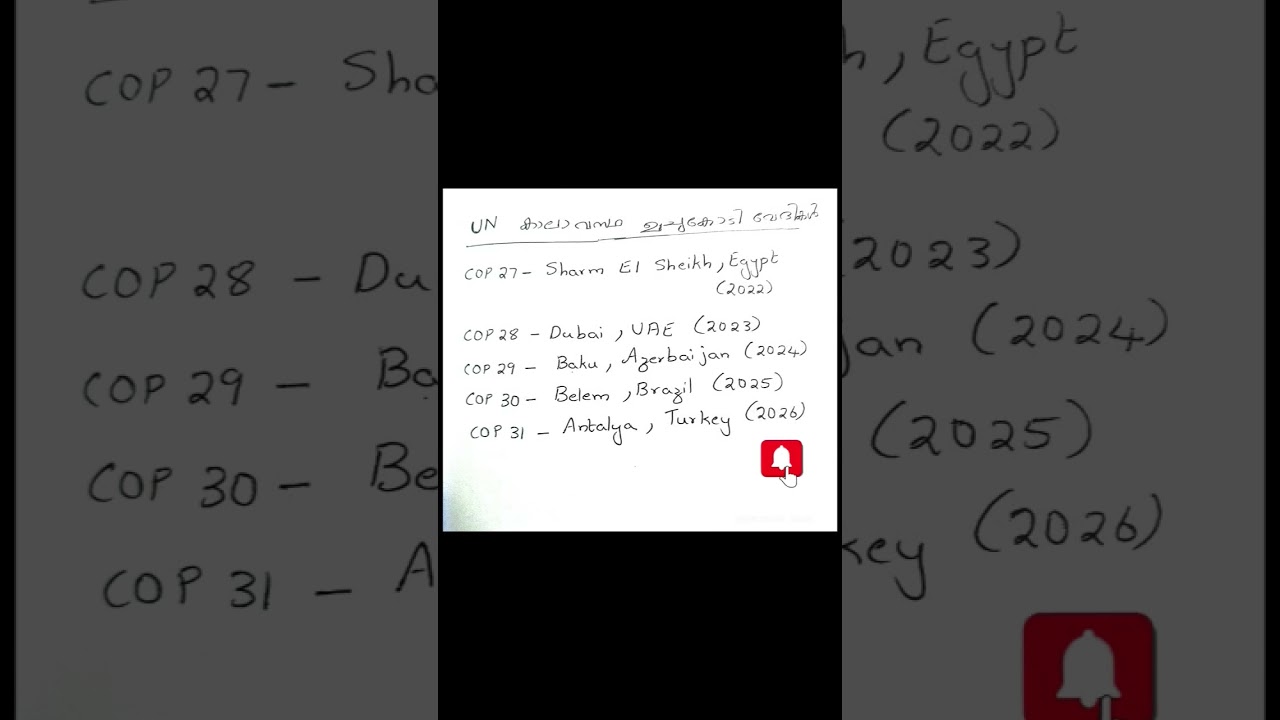 UN കാലാവസ്ഥ ഉച്ചകോടി വേദികൾ
COP 27 - Sharm El Sheikh, Egypt
(2022)
COP 28 - Dubai, UAE (2023)
COP 29 - Baku, Azerbaijan (2024)
COP 30 - Belem, Brazil (2025)
COP 31 - Antalya, Turkey (2026)